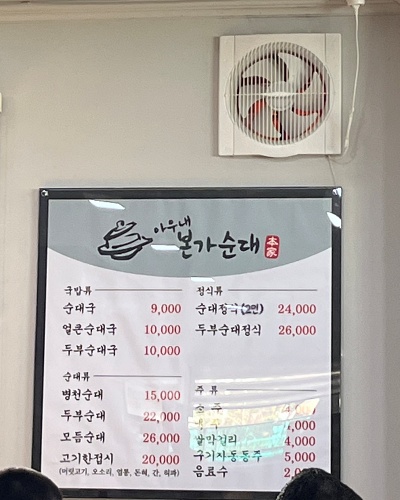 아우내
본가순대 本家
국밥류
순대국 9,000
얼큰순대국 10,000
두부순대국 10,000
순대류
병천순대 15,000
두부순대 22,000
모듬순대 26,000
고기한접시 20,000
정식류
순대정식(2인) 24,000
두부순대정식 26,000
주 류
쌀막걸리 4,000
구기자동동주 5,000
음료수